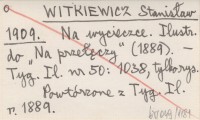 WITKIEWICZ Stanisław
1909. Na wycieczce. Ilustr.
do „Na przełęczy" (1889). –
Tyg. Il. nr 50: 1038, tylko rys.
Powtórzone z Tyg. Il.
r. 1889.